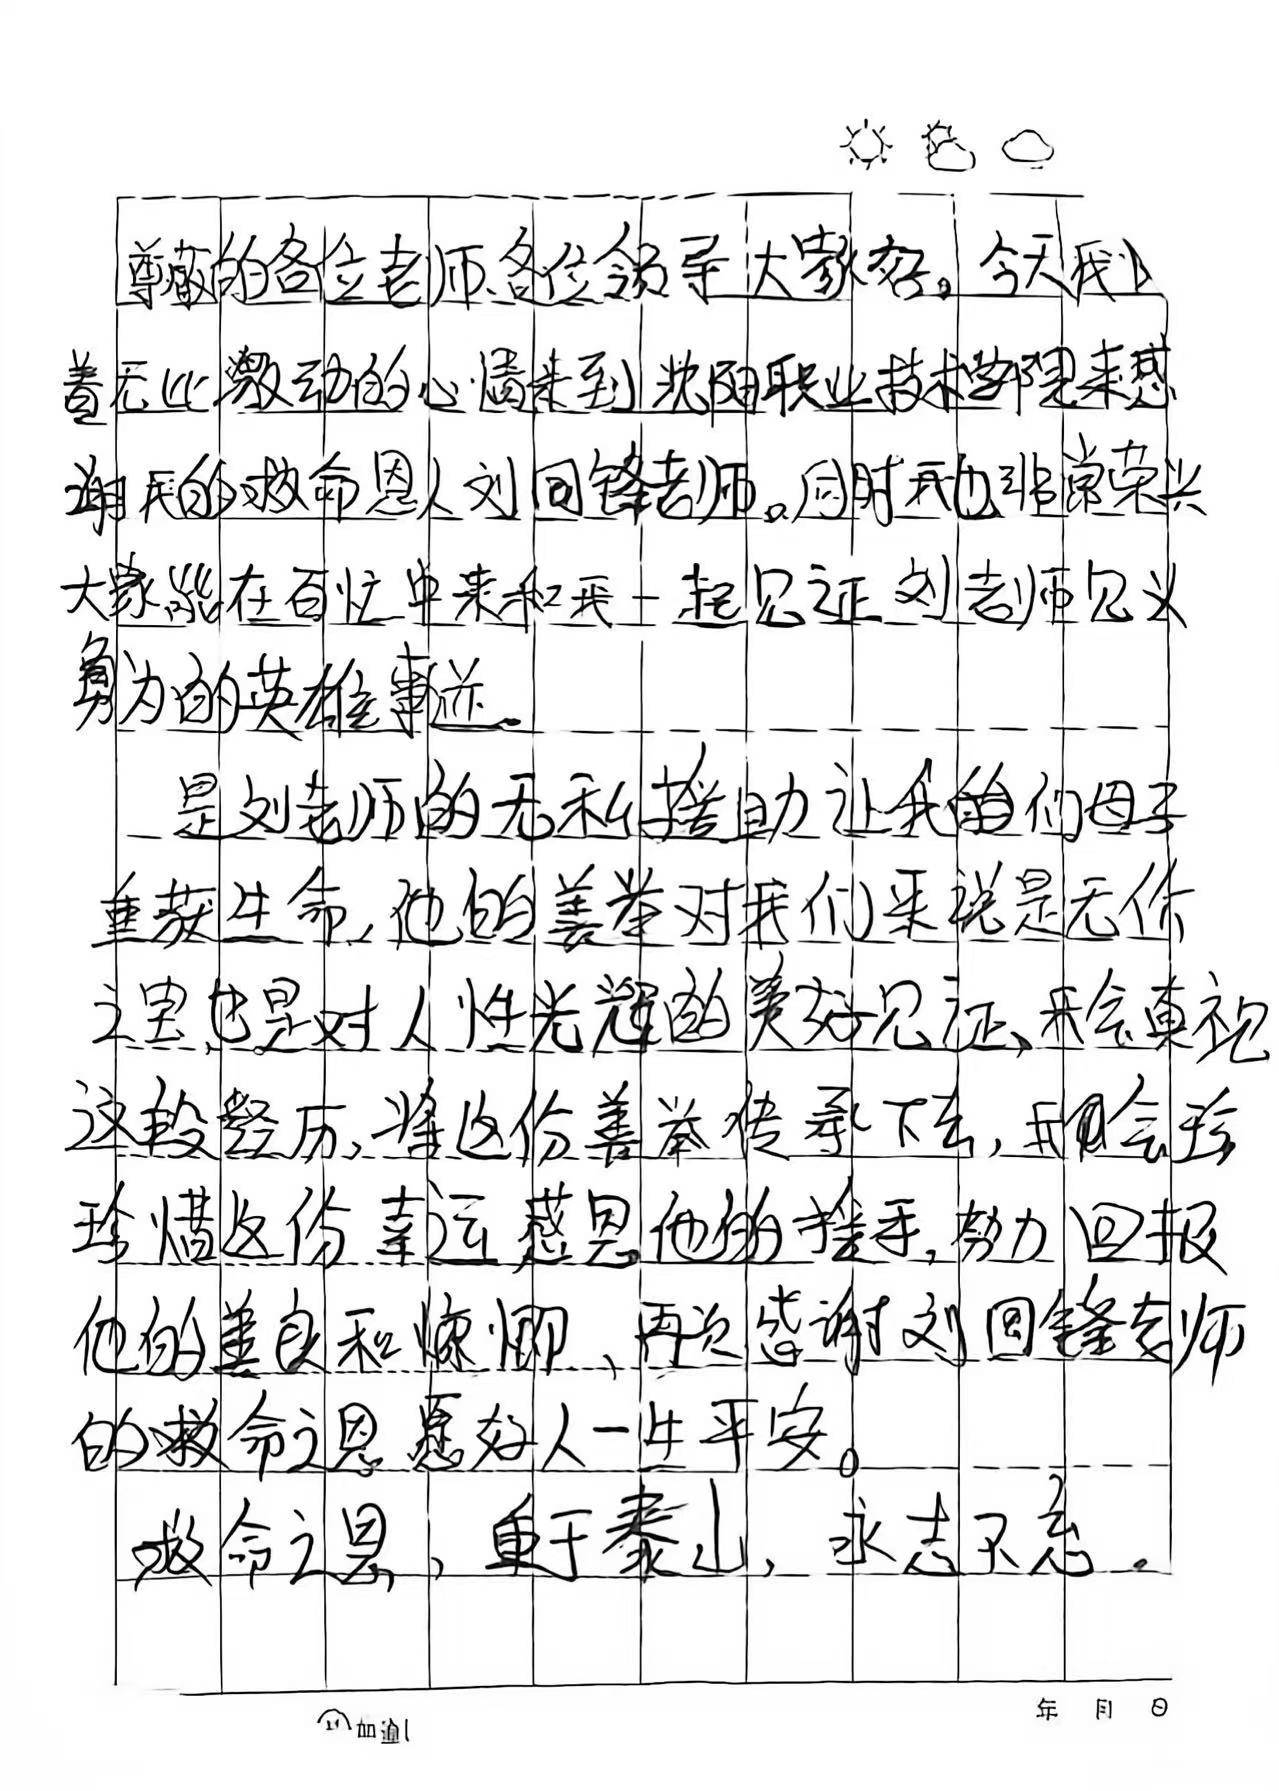 尊敬的各位老师、各位领导大家好。今天我
着无比激动的心情来到沈阳职业技术学院来感
谢我的救命恩人刘回锋老师。同时我也非常荣兴
大家能在百忙中来和我一起见证刘老师见义
勇为的英雄事迹。
是刘老师的无私援助让我们母子
重获生命,他的善举对我们来说是无价
之宝,也是对人性光辉的美好见证、我会真视
这段经历,将这份善举传承下去,我会珍
珍惜这份幸运感恩他的援手,努力回报
他的善良和慷慨、再次感谢刘回锋老师
的救命之恩愿好人一生平安。
救命之恩,重于泰山,永志不忘.
年 月 日
加逾